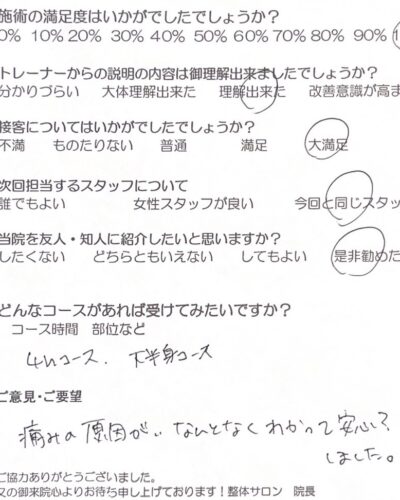 施術の満足度はいかがでしたでしょうか？
0% 10% 20% 30% 40% 50% 60% 70% 80% 90% 1
トレーナーからの説明の内容は御理解出来ましたでしょうか？
分かりづらい 大体理解出来た 理解出来た 改善意識が高ま
接客についてはいかがでしたでしょうか？
不満 ものたりない 普通 満足 大満足
次回担当するスタッフについて
誰でもよい 女性スタッフが良い 今回と同じスタッ
当院を友人・知人に紹介したいと思いますか？
したくない どちらともいえない してもよい 是非勧めた
どんなコースがあれば受けてみたいですか？
コース時間 部位など
4hコース、下半身コース
ご意見・ご要望
痛みの原因がなんとなくわかって安心
しました。
ご協力ありがとうございました。
又の御来院心よりお待ち申し上げております！整体サロン 院長